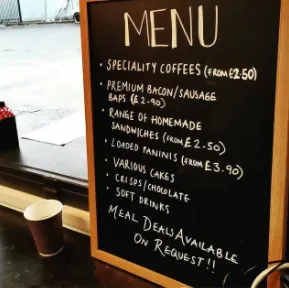 MENU
• SPECIALITY COFFEES (FROM £2.50)
• PREMIUM BACON/SAUSAGE
BAPS (£2.90)
• RANGE OF HOMEMADE
SANDWICHES (FROM £2.50)
• LOADED PANINIS (FROM £3.90)
• VARIOUS CAKES
• CRISPS/CHOCOLATE
• SOFT DRINKS
MEAL DEALS AVAILABLE
ON REQUEST!!